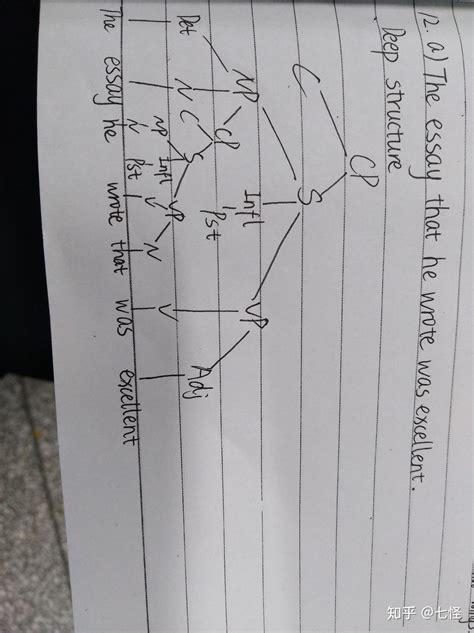 12. a) The essay that he wrote was excellent.
Deep structure
CP
C S
NP Infl VP
Pst
CP
Det N C S V Adj
NP Infl VP
N Pst V N
The essay he wrote that was excellent
知乎 @七怪